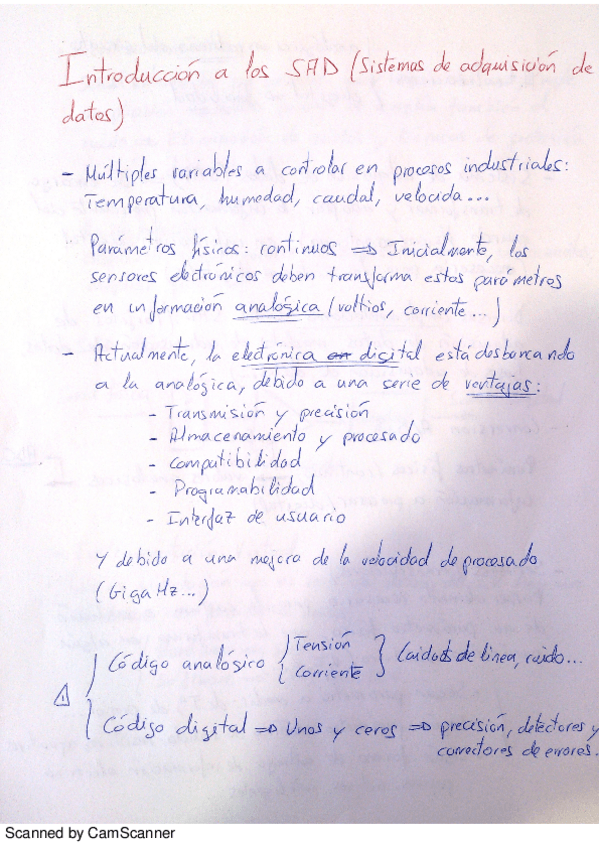 Introducción a los SAD (Sistemas de adquisición de
datos)
- Múltiples variables a controlar en procesos industriales:
Temperatura, humedad, caudal, velocida...
Parámetros físicos: continuos => Inicialmente, los
sensores electrónicos deben transforma estos parámetros
en información analógica (voltios, corriente...)
- Actualmente, la electrónica en digital está desbancando
a la analógica, debido a una serie de ventajas:
- Transmisión y precisión
- Almacenamiento y procesado
- Compatibilidad
- Programabilidad
- Interfaz de usuario
Y debido a una mejora de la velocidad de procesado
(GigaHz...)
Código analógico { Tensión
Corriente } Caidas de linea, ruido...
Código digital => Unos y ceros => precisión, detectores y
correctores de errores.
Scanned by CamScanner